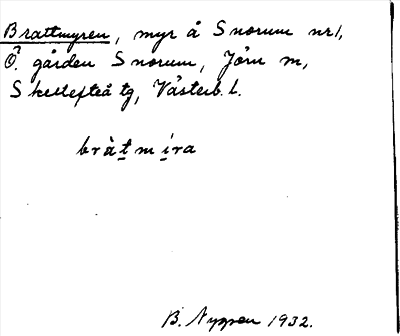 Brattmyren, myr å Snorum nr 1,
Ö. gården Snorum, Jörn sn,
Skellefteå tg, Västerb. l.
bràt̲mi̲ra
B. Nygren 1932.